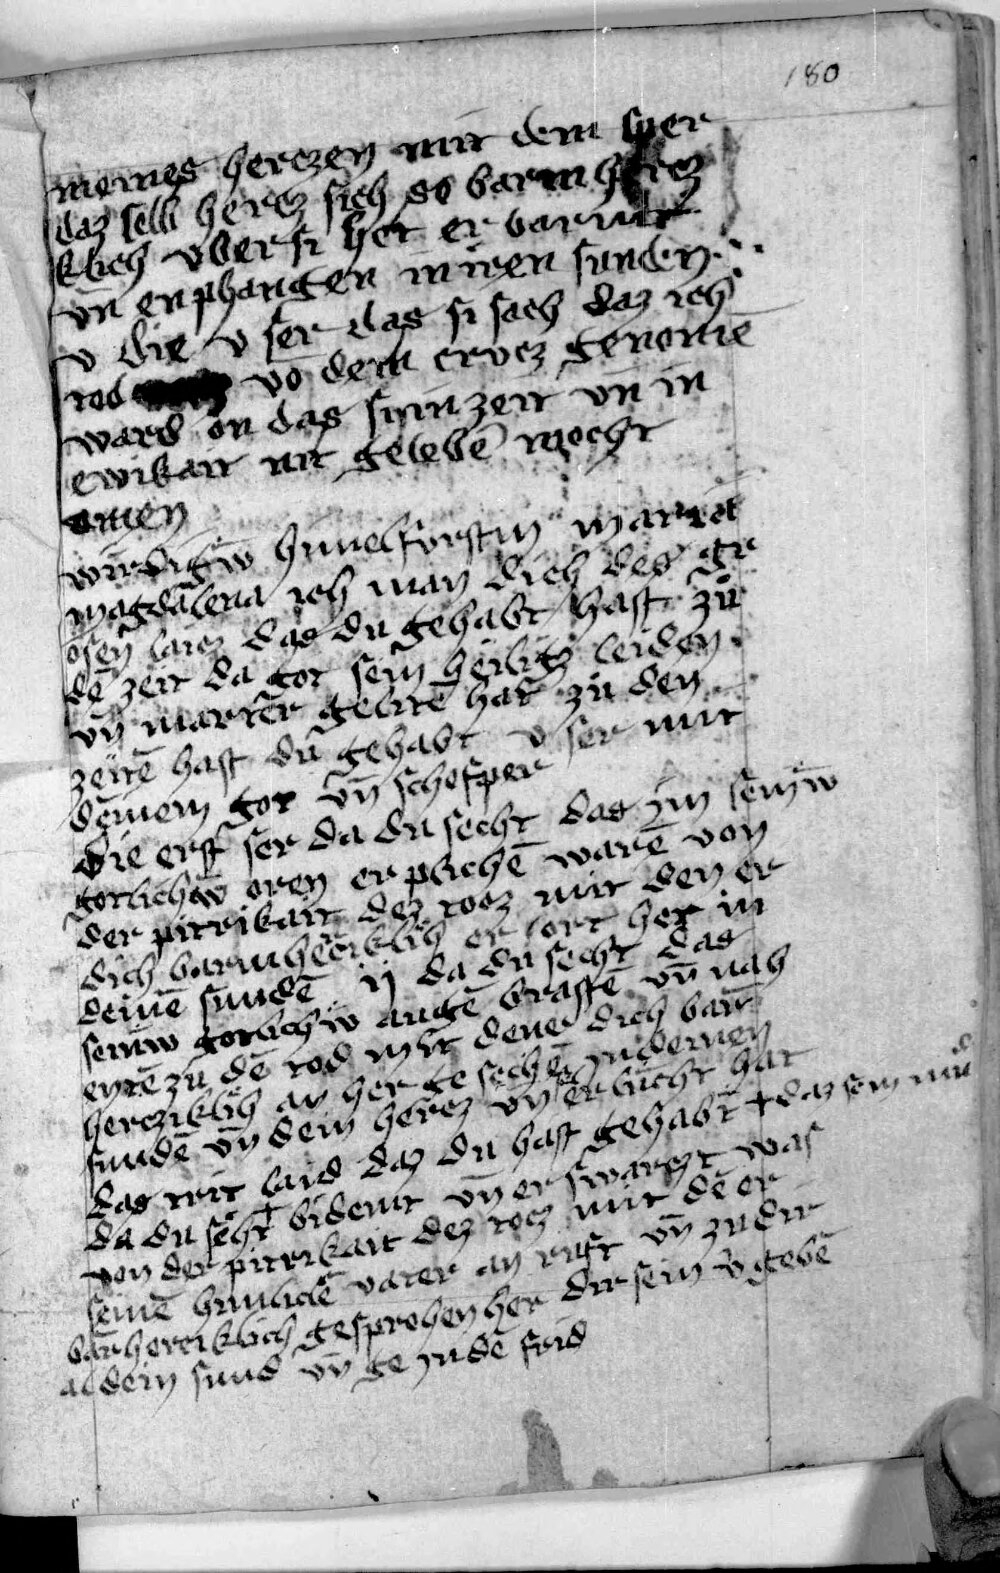 180
meines herczen mit dem sper
daz selb hercz sich so barmhercz
klich vber si het erbarmt
vn̄ enphangen in iren sunden
v die v ser das si sach daz ich
tod vō dem crucz genomē
ward on das si in zeit vn̄ in
ewikait nit gelebē mocht
amen
wirdigw̄ himelfurstin maria
magdalena ich man dich des gr
osen laitz das du gehabt hast zů
dē zeit da got sein heiligz leiden
vn̄ marter gelitē hat zů den
zeitē hast du gehabt v ser mit
deinem got vn̄ schefper
die erst ser da du secht das im seinw̄
gotlichw̄ oren erplichē warē von
der pitrikait dez totz mit den er
dich barmhercziklich erhort het in
deinē sundē ij da du secht das
seinw̄ gotlichw̄ augē brastē vn̄ nah
eytē zu dē tod mit denē dich barm
hercziklich an het gesechē in deinen
sundē vn̄ dein hercz vn̄ erlucht hat
das trit laid daz du hast gehabt + daz sein mūd
da du secht + bidemt vn̄ erswarczt was
von der pitrikait dez totz mit dē er
seinē himlischē vater an ruft vn̄ zu dir
barherciklich gesprochen het dir sein v̄gebē
al dein sund vn̄ ge in dē frid